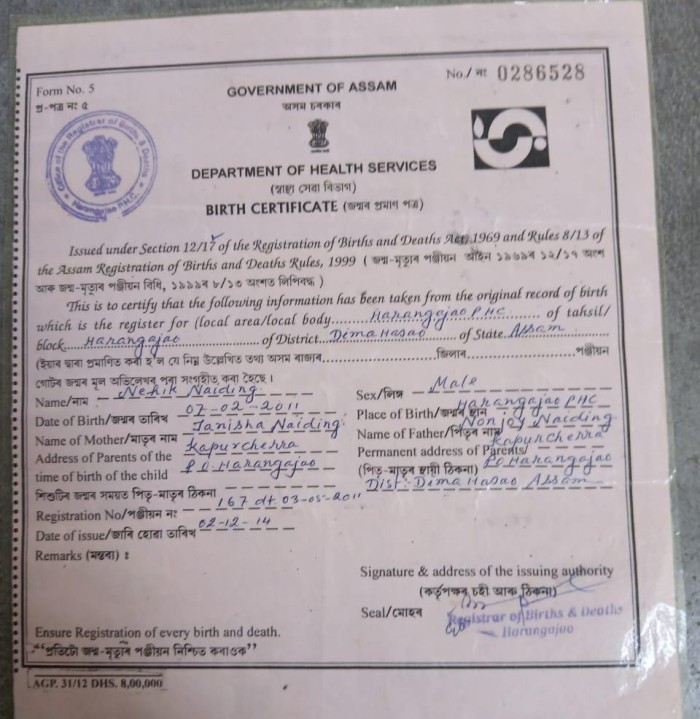 Form No. 5
প্ৰ-পত্ৰ নং ৫
No./ নং 0286528
GOVERNMENT OF ASSAM
অসম চৰকাৰ
Office of the Registrar of Births & Deaths
Harangajao P.H.C.
DEPARTMENT OF HEALTH SERVICES
(স্বাস্থ্য সেৱা বিভাগ)
BIRTH CERTIFICATE (জন্মৰ প্ৰমাণ পত্ৰ)
Issued under Section 12/17 of the Registration of Births and Deaths Act, 1969 and Rules 8/13 of
the Assam Registration of Births and Deaths Rules, 1999 ( জন্ম-মৃত্যুৰ পঞ্জীয়ন আইন ১৯৬৯ৰ ১২/১৭ অংশ
আৰু জন্ম-মৃত্যুৰ পঞ্জীয়ন বিধি, ১৯৯৯ৰ ৮/১৩ অংশত লিপিবদ্ধ )
This is to certify that the following information has been taken from the original record of birth
which is the register for (local area/local body Harangajao PHC of tahsil/
block Harangajao of District Dima Hasao of State Assam
(ইয়াৰ দ্বাৰা প্ৰমাণিত কৰা হ'ল যে নিম্ন উল্লেখিত তথ্য অসম ৰাজ্যৰ জিলাৰ পঞ্জীয়ন
গোটৰ জন্মৰ মূল অভিলেখৰ পৰা সংগৃহীত কৰা হৈছে।
Name/নাম Nehik Naiding Sex/লিঙ্গ Male
Date of Birth/জন্মৰ তাৰিখ 07-02-2011 Place of Birth/জন্মৰ স্থান Harangajao PHC
Name of Mother/মাতৃৰ নাম Janisha Naiding Name of Father/পিতৃৰ নাম Nonjoy Naiding
Address of Parents of the Kapurcherra Permanent address of Parents/ Kapurcherra
time of birth of the child P.O-Harangajao (পিতৃ-মাতৃৰ স্থায়ী ঠিকনা) PO Harangajao
শিশুটিৰ জন্মৰ সময়ত পিতৃ-মাতৃৰ ঠিকনা Dist: Dima Hasao Assam
Registration No/পঞ্জীয়ন নং 167 dt 03-05-2011
Date of issue/জাৰি হোৱা তাৰিখ 02-12-14
Remarks (মন্তব্য) :
Signature & address of the issuing authority
(কৰ্তৃপক্ষৰ চহী আৰু ঠিকনা)
Seal/মোহৰ Registrar of Births & Deaths
Harangajao
Ensure Registration of every birth and death.
“প্ৰতিটো জন্ম-মৃত্যুৰ পঞ্জীয়ন নিশ্চিত কৰাওক”
AGP. 31/12 DHS. 8,00,000